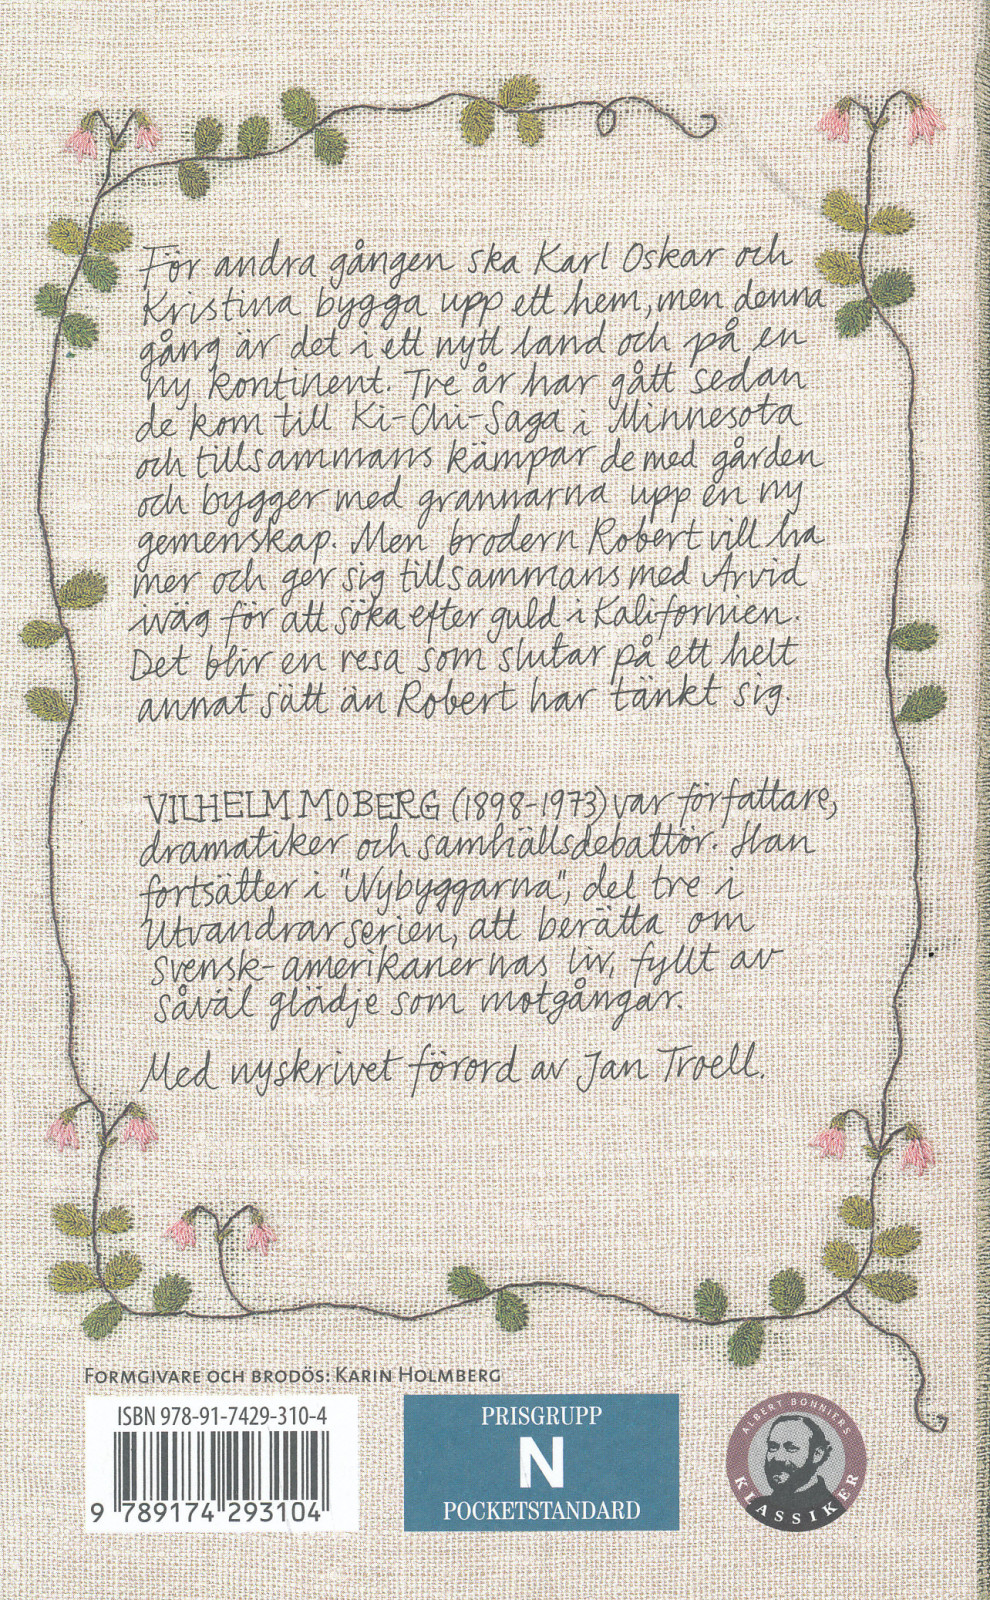 För andra gången ska Karl Oskar och
Kristina bygga upp ett hem, men denna
gång är det i ett nytt land och på en
ny kontinent. Tre år har gått sedan
de kom till Ki-Chi-Saga i Minnesota
och tillsammans kämpar de med gården
och bygger med grannarna upp en ny
gemenskap. Men brodern Robert vill ha
mer och ger sig tillsammans med Arvid
iväg för att söka efter guld i Kalifornien.
Det blir en resa som slutar på ett helt
annat sätt än Robert har tänkt sig.
VILHELM MOBERG (1898-1973) var författare,
dramatiker och samhällsdebattör. Han
fortsätter i "Nybyggarna", del tre i
Utvandrarserien, att berätta om
svensk-amerikanernas liv, fyllt av
såväl glädje som motgångar.
Med nyskrivet förord av Jan Troell.
FORMGIVARE OCH BRODÖS: KARIN HOLMBERG
ISBN 978-91-7429-310-4
9 789174 293104
PRISGRUPP
N
POCKETSTANDARD
ALBERT BONNIERS
KLASSIKER